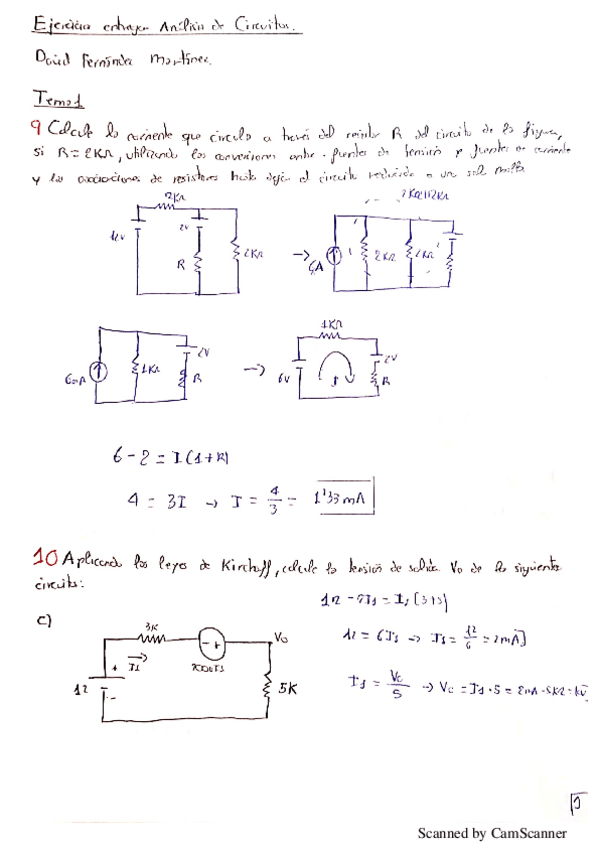 Ejercicios entregar Análisis de Circuitos.
David Fernández Martínez.
Tema 1
9 Calcule la corriente que circula a través del resistor R del circuito de la figura,
si R = 2KΩ, utilizando las conversiones entre fuentes de tensión y fuentes de corriente
y las asociaciones de resistores hasta dejar el circuito reducido a una sola malla
2KΩ
2KΩ||2KΩ
12V
2V
R
2KΩ
→
2KΩ
2KΩ
6mA
1KΩ
2V
R
→
1KΩ
6V
I
2V
R
6-2 = I(1+R)
4 = 3I → I = 4/3 = 1'33 mA
10 Aplicando las leyes de Kirchoff, calcule la tensión de salida Vo de los siguientes
circuitos:
c)
3K
Vo
I1
12
5K
12 = 6I1 → I1 = 12/6 = 2mA
1
Scanned by CamScanner